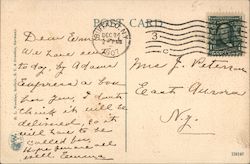 POST CARD
Dear Emma
We have sent
to day, by Adams
Express a box
for you, I don't
think it will be
delivered, so it
will have to be
called for.
Hope you are all
well. Emma
DEC 24
1907
3
C
Mrs J. Peterson
East Aurora
N.y.